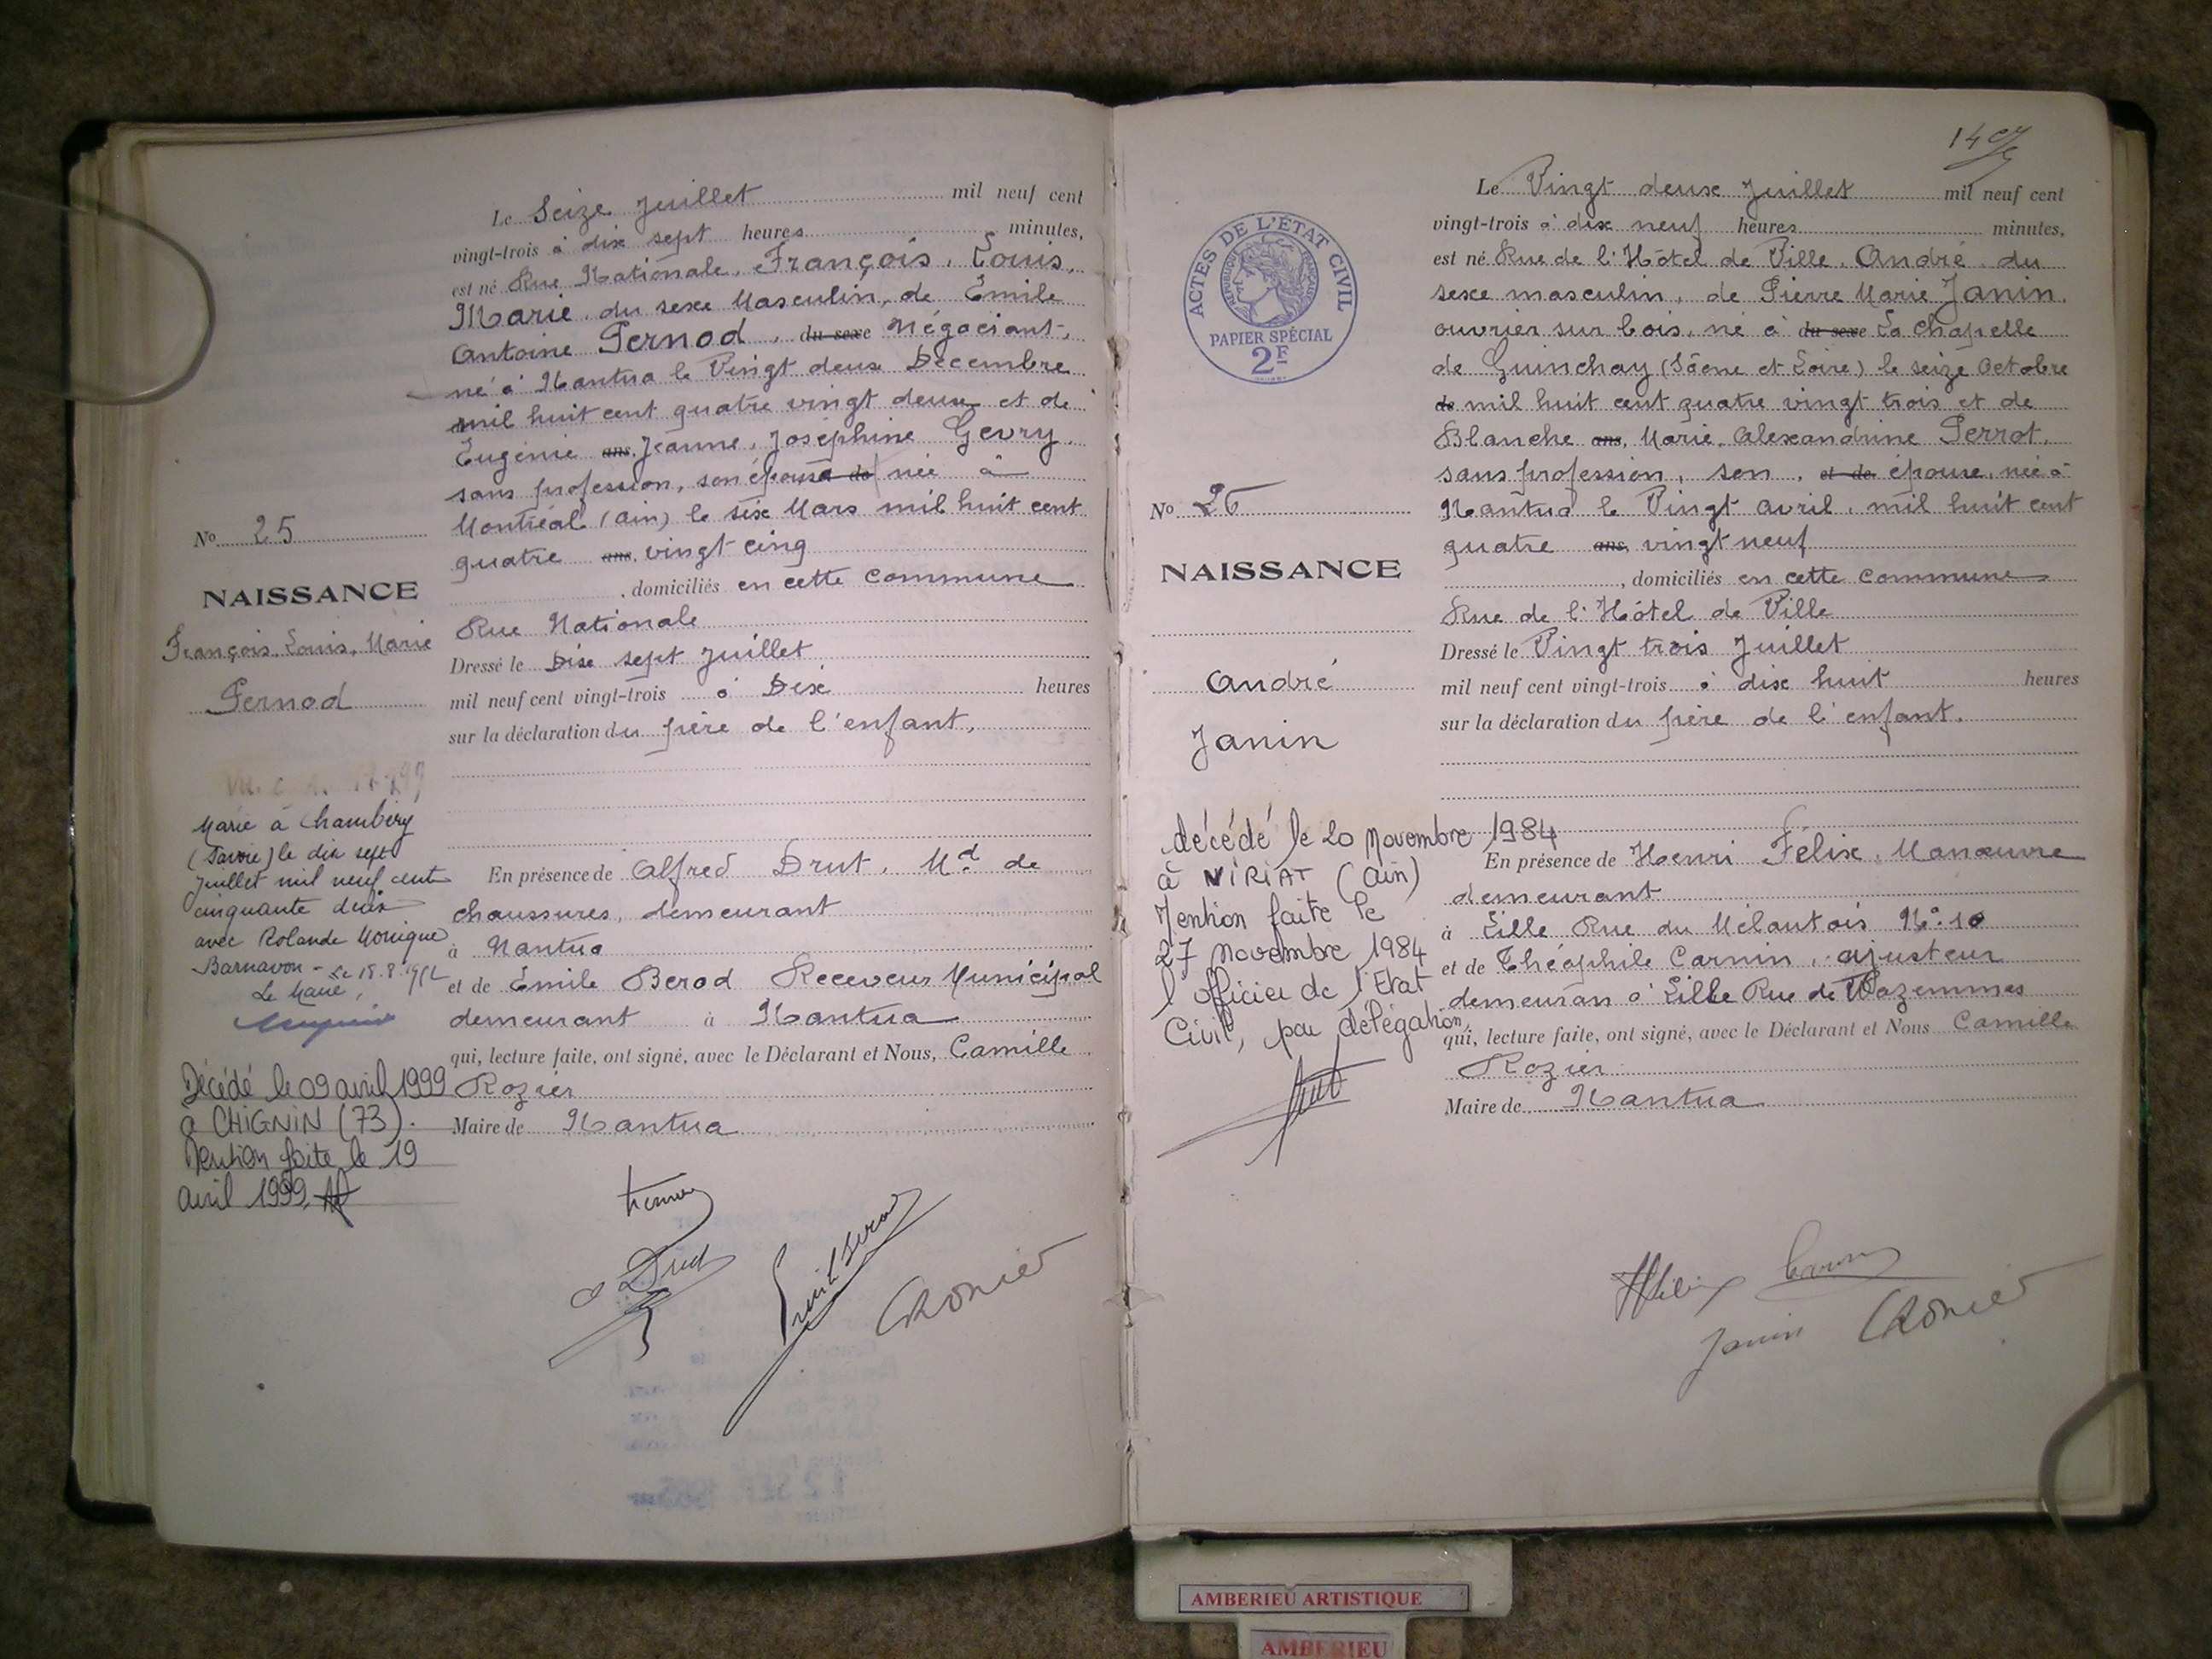 Le Seize Juillet mil neuf cent
vingt-trois à dix sept heures minutes,
est né Rue Nationale, François, Louis,
Marie, du sexe Masculin, de Emile
Antoine Pernod, du sexe Négociant,
né à Nantua le Vingt deux Décembre
mil huit cent quatre vingt deux et de
Eugénie ans, Jeanne, Joséphine Gevry,
sans profession, son épouse de née à
Montréal (Ain) le six Mars mil huit cent
quatre ans, vingt cinq
, domiciliés en cette commune
Rue Nationale
Dressé le Dix sept Juillet
mil neuf cent vingt-trois à Dix heures
sur la déclaration du père de l'enfant,
En présence de Alfred Drut, Md de
chaussures, demeurant
à Nantua
et de Emile Berod Receveur Municipal
demeurant à Nantua
qui, lecture faite, ont signé, avec le Déclarant et Nous, Camille
Rozier
Maire de Nantua
No 25
NAISSANCE
François, Louis, Marie
Pernod
Marié à Chambéry
(Savoie) le dix sept
Juillet mil neuf cent
cinquante deux
avec Rolande Monique
Barnavon - Le 18.8.1952
Le Maire,
Décédé le 09 avril 1999
à CHIGNIN (73).
Mention faite le 19
avril 1999.
Drut
Emile Berod
CRozier
14
Le Vingt deux Juillet mil neuf cent
vingt-trois à dix neuf heures minutes,
est né Rue de l'Hôtel de Ville, André, du
sexe masculin, de Pierre Marie Janin,
ouvrier sur bois, né à du sexe La Chapelle
de Guinchay (Saône et Loire) le seize Octobre
de mil huit cent quatre vingt trois et de
Blanche ans, Marie, Alexandrine Perrot,
sans profession, son, et de, épouse, née à
Nantua le Vingt avril, mil huit cent
quatre ans, vingt neuf
, domiciliés en cette commune
Rue de l'Hôtel de Ville
Dressé le Vingt trois Juillet
mil neuf cent vingt-trois à dix huit heures
sur la déclaration du père de l'enfant.
En présence de Henri Félix, Manœuvre
demeurant
à Lille Rue du Mélantois No 10
et de Théophile Carnin, ajusteur
demeuran à Lille Rue de Wazemmes
qui, lecture faite, ont signé, avec le Déclarant et Nous Camille
Rozier
Maire de Nantua
ACTES DE L'ÉTAT CIVIL
RÉPUBLIQUE FRANÇAISE
PAPIER SPÉCIAL
2F
No 26
NAISSANCE
André
Janin
décédé le 20 Novembre 1984
à VIRIAT (Ain)
Mention faite le
27 Novembre 1984
l'officier de l'Etat
Civil, par délégation,
HFélix
Carnin
Janin
CRozier
AMBERIEU ARTISTIQUE
AMBERIEU